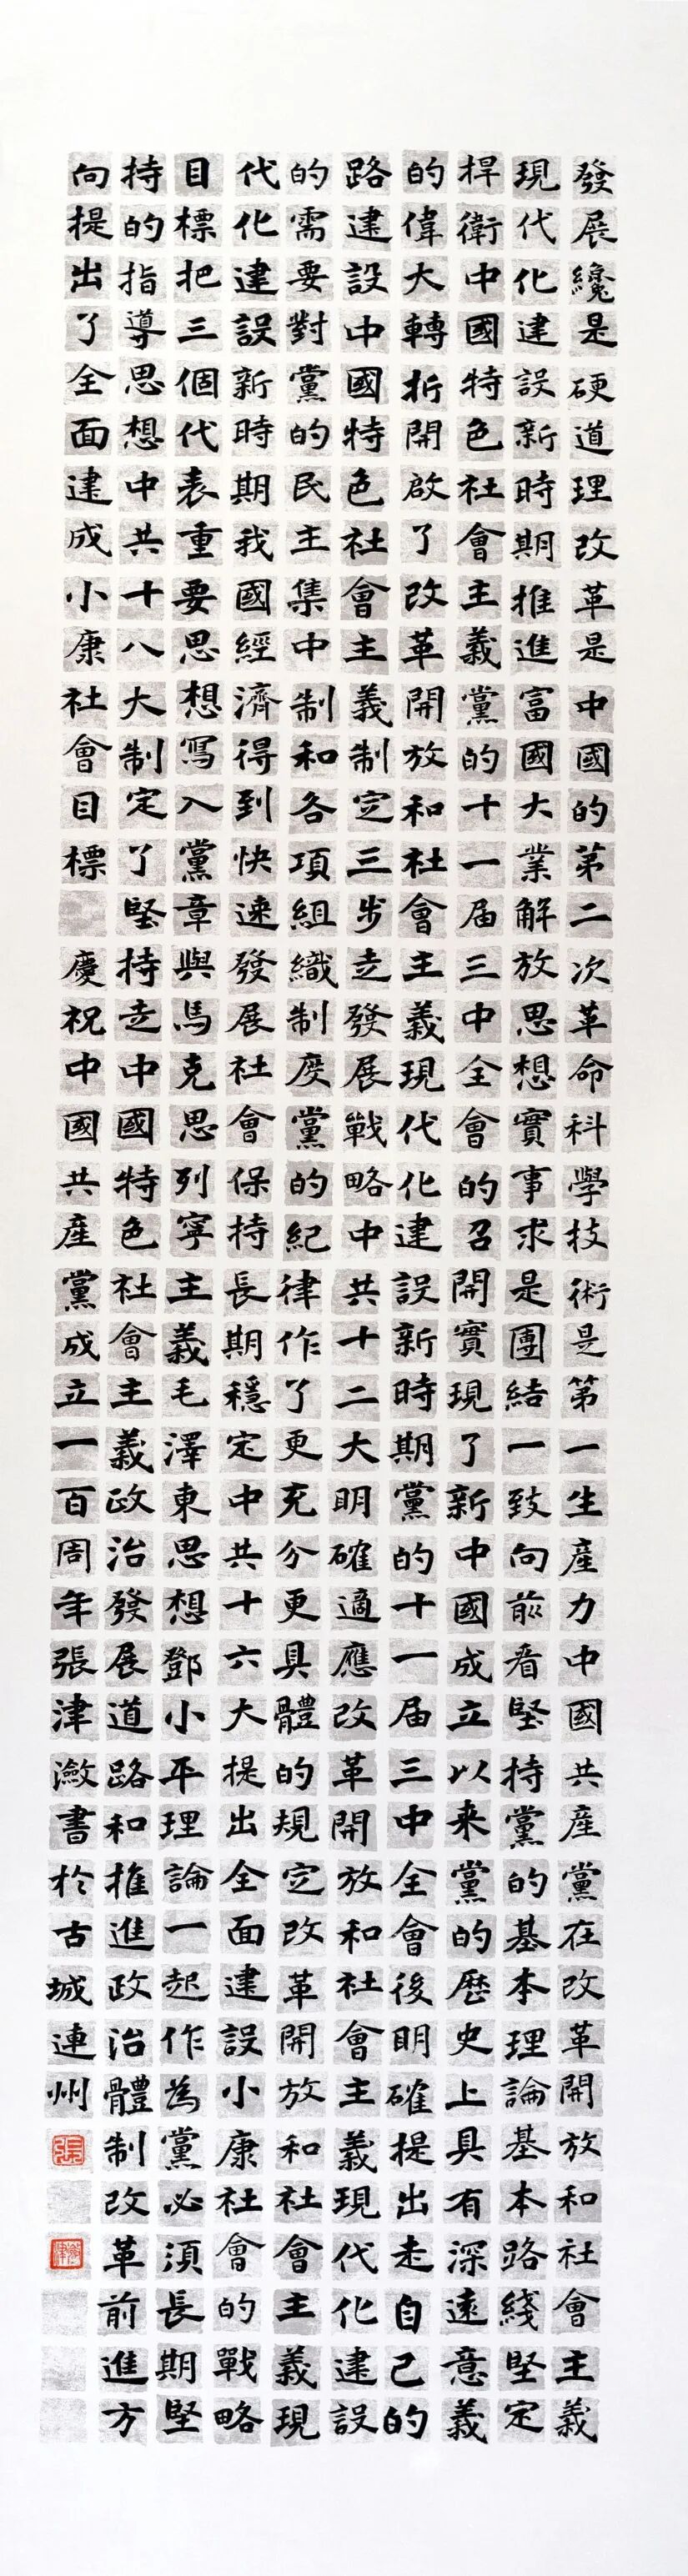 發展纔是硬道理改革是中國的第二次革命科學技術是第一生産力中國共産黨在改革開放和社會主義
現代化建設新時期推進富國大業解放思想實事求是團結一致向前看堅持黨的基本理論基本路綫堅定
捍衛中國特色社會主義黨的十一届三中全會的召開實現了新中國成立以来黨的歷史上具有深遠意義
的偉大轉折開啟了改革開放和社會主義現代化建設新時期黨的十一届三中全會後明確提出走自己的
路建設中國特色社會主義制定三步走發展戰略中共十二大明確適應改革開放和社會主義現代化建設
的需要對黨的民主集中制和各項組織制度黨的紀律作了更充分更具體的規定改革開放和社會主義現
代化建設新時期我國經濟得到快速發展社會保持長期穩定中共十六大提出全面建設小康社會的戰略
目標把三個代表重要思想寫入黨章與馬克思列寧主義毛澤東思想鄧小平理論一起作為黨必須長期堅
持的指導思想中共十八大制定了堅持走中國特色社會主義政治發展道路和推進政治體制改革前進方
向提出了全面建成小康社會目標 慶祝中國共産黨成立一百周年張津瀲書於古城連州
張